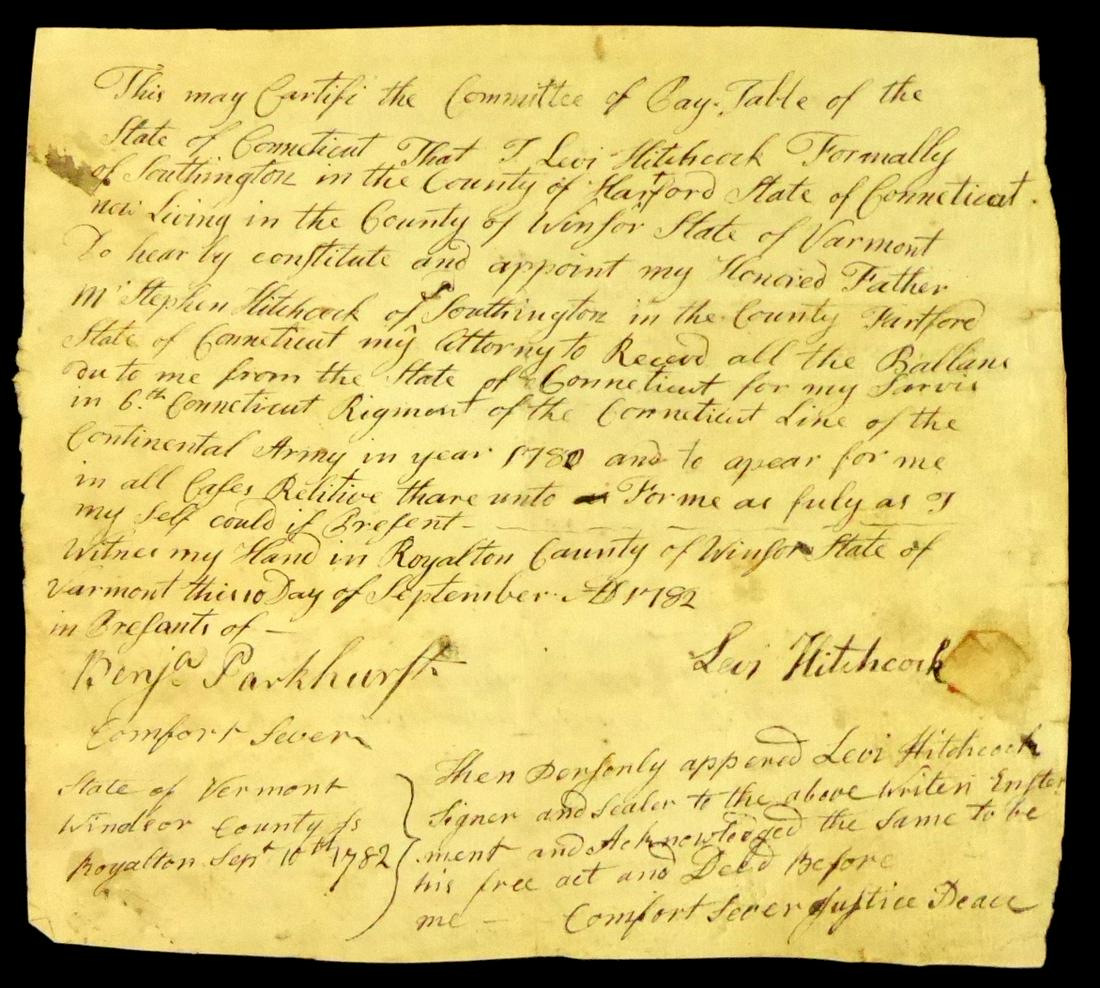 This may Cartifi the Committee of Pay-Table of the
State of Conneticut That I Levi Hitchcock Formally
of Southington in the County of Hartford State of Conneticut
now Living in the County of Winsor State of Varmont
Do hear by constitute and appoint my Honored Father
Mr Stephen Hitchcock of Southington in the County Hartford
State of Conneticut my Attorny to Receed all the Ballans
due to me from the State of Conneticut for my Sarvis
in 6th Conneticut Rigment of the Conneticut Line of the
Continental Army in year 1780 and to apear for me
in all Cases Relitive thare unto For me as fuly as I
my Self could if Present
Witnes my Hand in Royalton County of Winsor State of
Varmont this 10 Day of September AD 1782
in Presants of
Benja Parkhurst
Levi Hitchcock
Comfort Sever
State of Vermont
Windsor County ss
Royalton Sept 10th 1782
Then Personly appered Levi Hitchcock
Signer and Sealer to the above Writen Enster
ment and Acknowledged the Same to be
his free act and Deed Before
me - Comfort Sever Justice Peace